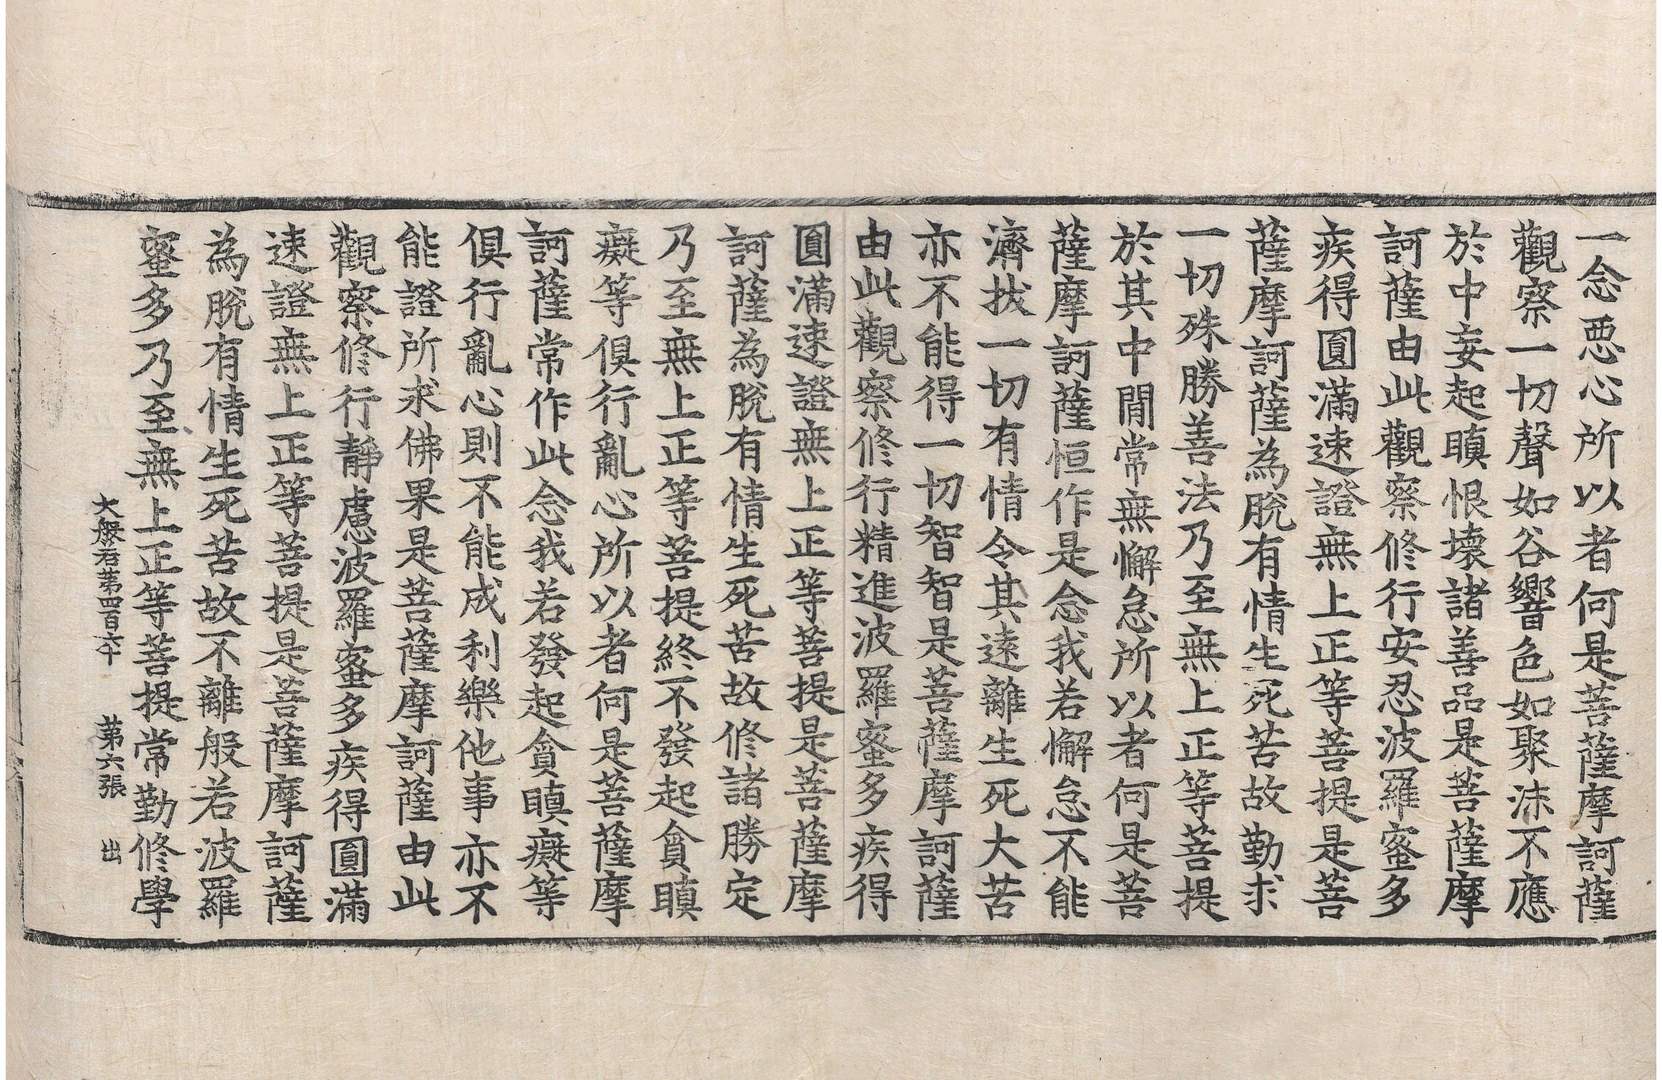 一念惡心所以者何是菩薩摩訶薩
觀察一切聲如谷響色如聚沫不應
於中妄起瞋恨壞諸善品是菩薩摩
訶薩由此觀察修行安忍波羅蜜多
疾得圓滿速證無上正等菩提是菩
薩摩訶薩為脫有情生死苦故勤求
一切殊勝善法乃至無上正等菩提
於其中閒常無懈怠所以者何是菩
薩摩訶薩恒作是念我若懈怠不能
濟拔一切有情令其遠離生死大苦
亦不能得一切智智是菩薩摩訶薩
由此觀察修行精進波羅蜜多疾得
圓滿速證無上正等菩提是菩薩摩
訶薩為脫有情生死苦故修諸勝定
乃至無上正等菩提終不發起貪瞋
癡等俱行亂心所以者何是菩薩摩
訶薩常作此念我若發起貪瞋癡等
俱行亂心則不能成利樂他事亦不
能證所求佛果是菩薩摩訶薩由此
觀察修行靜慮波羅蜜多疾得圓滿
速證無上正等菩提是菩薩摩訶薩
為脫有情生死苦故不離般若波羅
蜜多乃至無上正等菩提常勤修學
大般若第四百六十 第六張 出